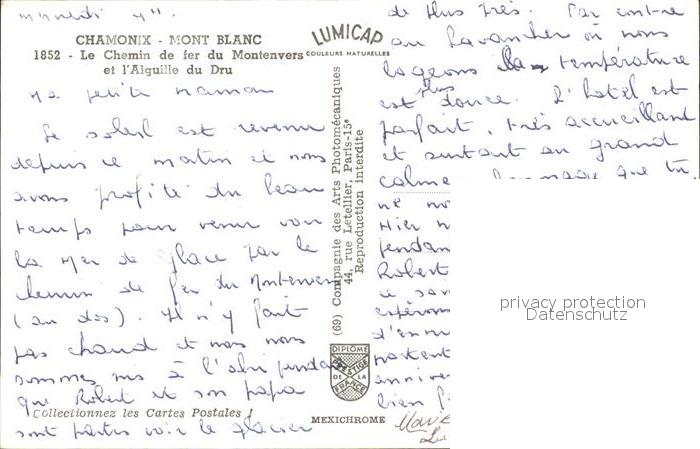 CHAMONIX - MONT BLANC
1852 - Le Chemin de fer du Montenvers
et l'Aiguille du Dru
LUMICAP
COULEURS NATURELLES
Ma petite maman
Le soleil est revenu
depuis ce matin et nous
avons profité du beau
temps pour venir voir
la Mer de glace par le
chemin de fer du Montenvers
(au dos). Il n'y fait
pas chaud et nous nous
sommes mis à l'abri pendant
que Robert et son papa
sont partis voir le glacier
Collectionnez les Cartes Postales !
(69) Compagnie des Arts Photomécaniques
44, rue Letellier, Paris-15e
Reproduction interdite
DIPLOME
PRESTIGE
DE LA
FRANCE
MEXICHROME
de plus près. Par contre
au Lavancher où nous
logeons la température
est plus douce. L'hotel est
parfait, très accueillant
et surtout au grand
calme que tu
ne
Hier
pendan
Robert
ce
espérons
d'en
partent
annive
bien
privacy protection
Datenschutz